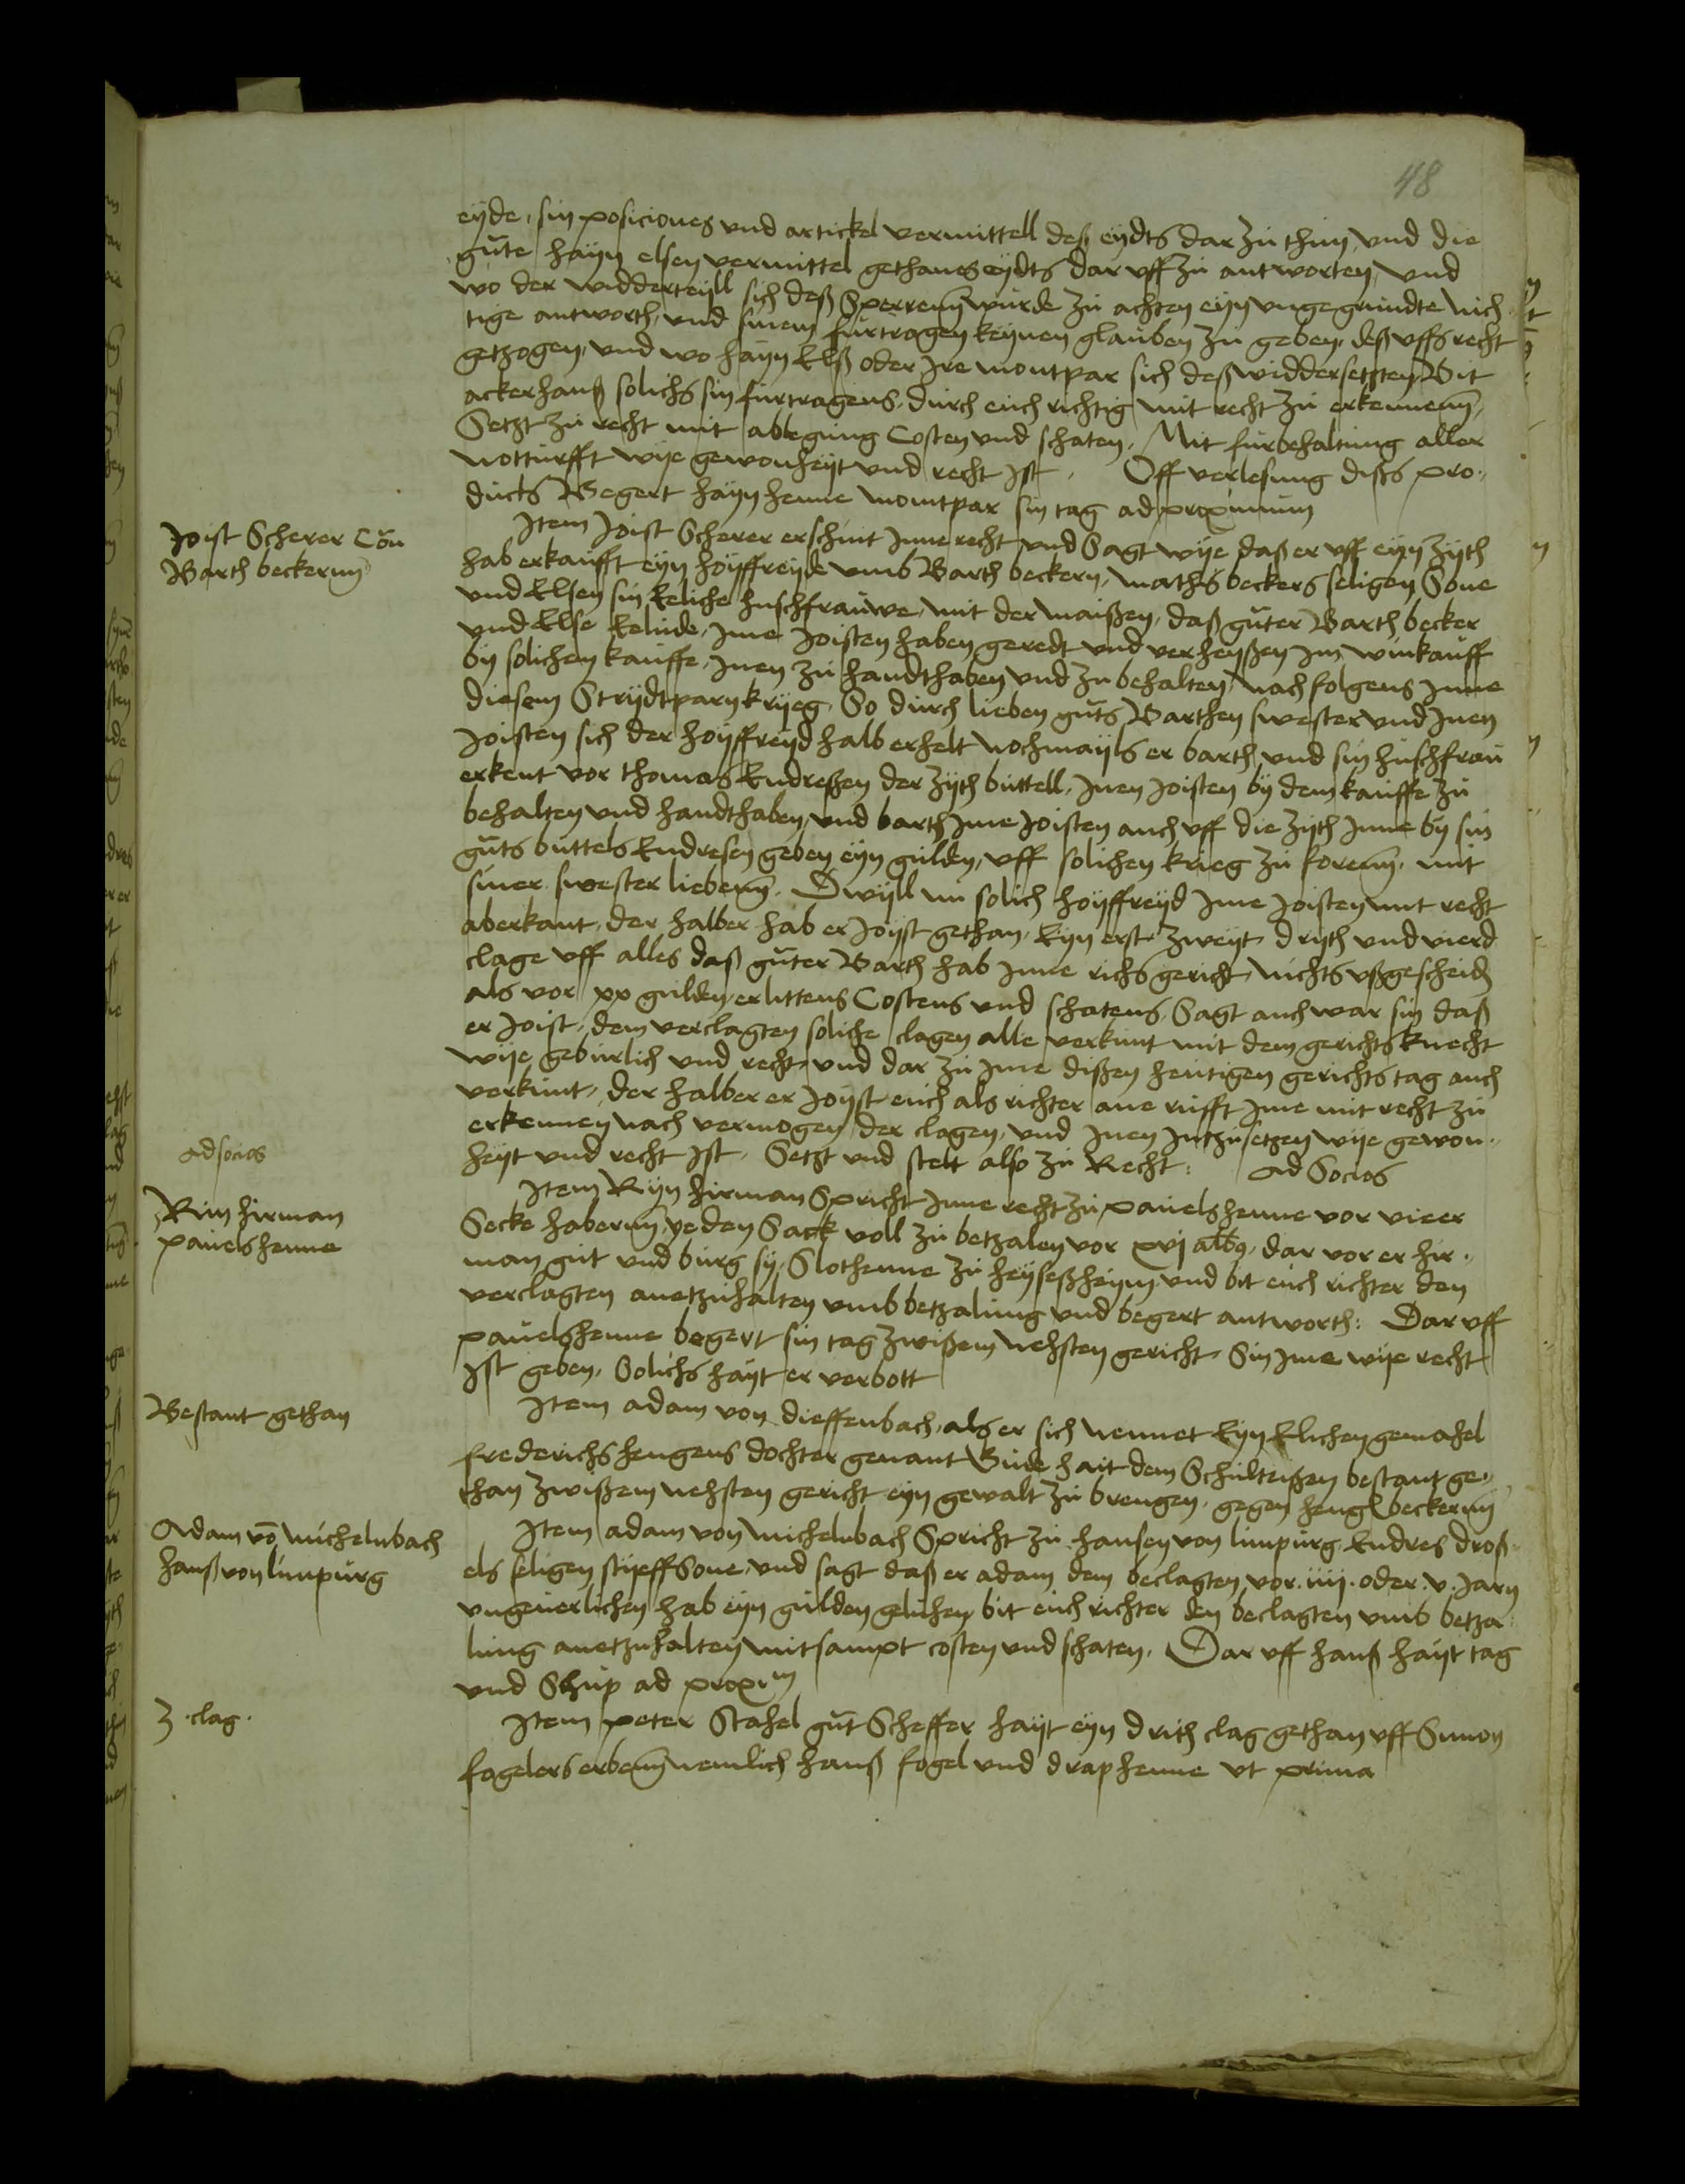 48
eyde, sin posiciones vnd artickel vermittell deß eydts dar zu thun, vnd die
gute hayn elsen vermittel gethanes eydts dar vff zu antworten, vnd
wo der widderteyll sich deß Sperrenn wurde zu achten eyn vngegrundte nich
tige antworth, vnd sinem furtragen keynen glauben zu geben, deß vffs recht
getzogen, vnd wo hayn Elß oder Ire montpar sich deß widdersetzten Bit
ackerhanß solichs sin furtragens, durch euch richtig mit recht zu erkennenn,
Setzt zu recht mit ablegung Costen vnd schaten. Mit furbehaltung aller
notturfft wye gewonheyt vnd recht Ist. Off verlesung dißs pro
ducts Begert hayn henne momtpar sin tag ad proximum
Joist Scherer Con
Barth beckernn
Item Joist Scherer erschint Inne recht vnd Sagt wye daß er vff eyn zyth
hab erkaufft eyn hoyffreyde vmb Barth beckern, mathis beckers seligen Sone
vnd Elsen sin Eeliche huschfrauwe, mit der maißen, daß guter Barth becker
vnd Else Eelude, Ime Joisten haben geredt vnd verheyßen Im winkauff
by solichen kauffe, Inen zu handthaben vnd zu behalten, nachfolgens Inne
diesem Strydtparn kryeg, So durch lieben guts Barthen swester vnd Inen
Joisten sich der hoyffreyd halb erhelt nochmayls er barth vnd sin huschfrau
erkent vor thomas Endreßen der zyth buttell, Inen Joisten by dem kauffe zu
behalten vnd handthaben, vnd barth Ime Joisten auch vff die zyth Inne by sin
guts buttels Endresen geben eyn gulden, vff solichen krieg zu forenn, mit
siner swester liebenn. Dwyll nu solich hoyffreyd Ime Joisten mit recht
aberkant, der halber hab er Joyst gethan, Eyn erst, zweyt, dryth vnd vierd
clage vff alles daß guter Barth hab Inne richs gericht, nichts vßgescheid
als vor xx gulden erlittens Costens vnd schatens, Sagt auch war sin daß
er Joist, dem verclagten soliche clagen alle verkunt mit dem gerichts knecht
wye geburlich vnd recht, vnd dar zu Ime dißen heutigen gerichts tag auch
verkunt, der halber er Joyst euch als richter ane rufft Ime mit recht zu
erkennen nach vermogen der clagen, vnd Inen Intzusetzen wye gewon
heyt vnd recht Ist. Setzt vnd stelt also zu Recht: ad Socios
ad socios
Rin hirman
pauels henne
Item Ryn hirman Spricht Inne recht zu pauels henne vor vieer
Secke habernn, yeden Sack voll zu betzalen vor xvj albg, dar vor er hir
man gut vnd burg sy, Slothenne zu heyseßheym vnd bit euch richter den
verclagten anetzuhalten vmb betzalung vnd begert antworth: Dar vff
pauelshenne begert sin tag zwißem nehsten gericht, Sin Ime wye recht
Ist geben, Solichs hayt er verbott
Bestant gethan
Item adam von dieffenbach, als er sich nennet Eyn Elichen gemahel
frederichs hengens dochter genant hait dem Schulteißen bestant ge
than zwißem nehsten gericht eyn gewalt zu brengen, gegen beckernn
Adam vo michelnbach
hanß von limpurg
Item adam von michelnbach Spricht zu hansen von limpurg Endres droß
els seligen styeffSone, vnd sagt daß er adam dem beclagten vor .iiij. oder .v. Jarn
vngeuerlichen hab eyn gulden gelichen, bit euch richter den beclagten vmb betza
lung anetzuhalten mit sampt costen vnd schaten. Dar vff hanß hayt tag
vnd Schup ad proxim
3 clag.
Item peter Stahel gut Scheffer hayt eyn drith clag gethan vff Simon
fogelers erbenn nemlich hanß fogel vnd drap henne vt prima